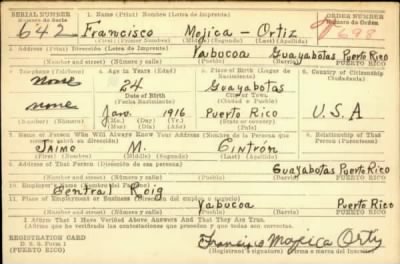 SERIAL NUMBER
1. Name (Print) Nombre (Letra de Imprenta)
ORDER NUMBER
Número de Serie
Número de Orden
642
Francisco Mojica - Ortiz
698
(First) (Primer Nombre) (Middle) (Segundo) (Last) (Apellido)
2. Address (Print) Dirección (Letra de Imprenta)
Yabucoa Guayabotas Puerto Rico
(Number and street) (Número y calle) (Town) (Pueblo) (Barrio) PUERTO RICO
3. Telephone (Teléfono)
4. Age in Years (Edad)
5. Place of Birth (Lugar de Nacimiento)
6. Country of Citizenship (Ciudadanía)
none
24
Guayabotas
Date of Birth
(Fecha Nacimiento)
(Ciudad o Pueblo)
none
Jan. 1916
Puerto Rico
U.S.A
(Number) (Número)
(Mo.) (Day) (Yr.)
(State or country)
(Mes) (Día) (Año)
7. Name of Person Who Will Always Know Your Address (Nombre de la Persona que
8. Relationship of That Person (Parentesco)
JAIME M. Cintrón
(First) (Nombre) (Middle) (Segundo) (Last) (Apellido)
9. Address of That Person (Dirección de esa persona)
Guayabotas Puerto Rico
(Number and street) (Número y calle) (Town) (Pueblo) (Barrio) PUERTO RICO
10. Employer's Name (Nombre del Patrono)
Central Roig
11. Place of Employment or Business (Dirección del empleo o negocio)
Yabucoa Puerto Rico
(Number and street) (Número y calle) (Town) (Pueblo) PUERTO RICO
I Affirm That I Have Verified Above Answers and That They Are True.
(Afirmo que he verificado las contestaciones que preceden y que todas son ciertas)
REGISTRATION CARD
D. S. S. Form 1
(PUERTO RICO)
Francisco Mojica Ortiz
(Registrant's signature) (Firma o marca del Inscrito)